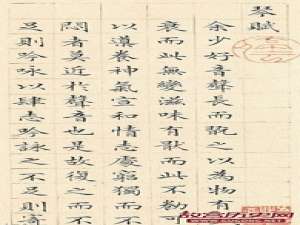 琴賦
余少好音聲長而翫之以為物有
衰而此無變滋味有猒而此不勌可
以導養神氣宣和情志處窮獨而不
悶者莫近於聲音也是故復之而不
足則吟詠以肆志吟詠之不足則寄